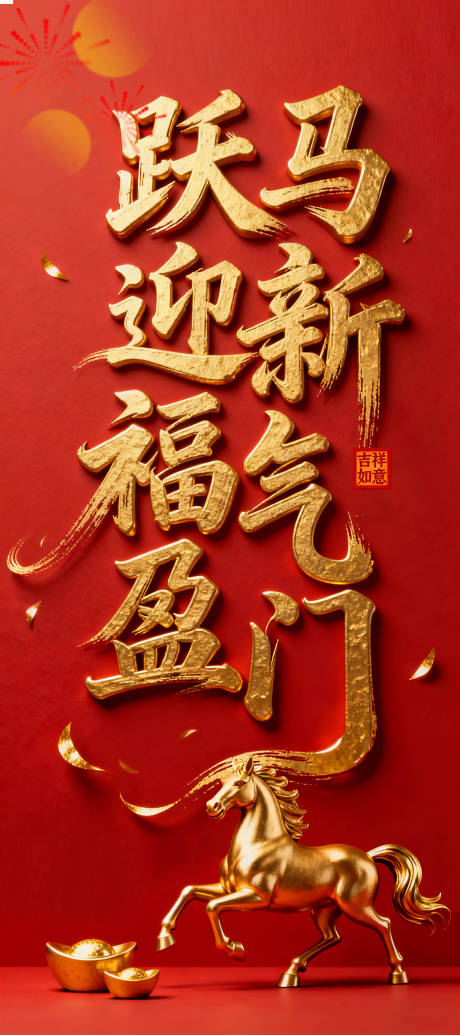 跃马
迎新
福气
盈门
吉祥
如意